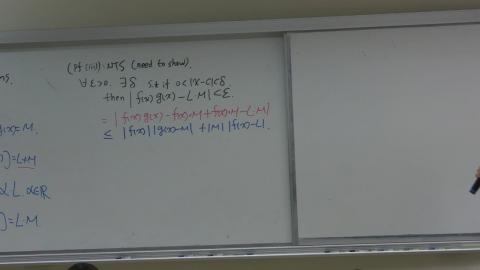 ns.
g(x)=M.
)=L+M
α·L. α∈R
)=L·M.
(pf (iii)): NTS (need to show).
∀ε>0. ∃δ s.t if 0<|x-c|<δ.
then |f(x)g(x)-L·M|<ε.
= |f(x)g(x)-f(x)·M+f(x)·M-L·M|
≤ |f(x)||g(x)-M|+|M||f(x)-L|.